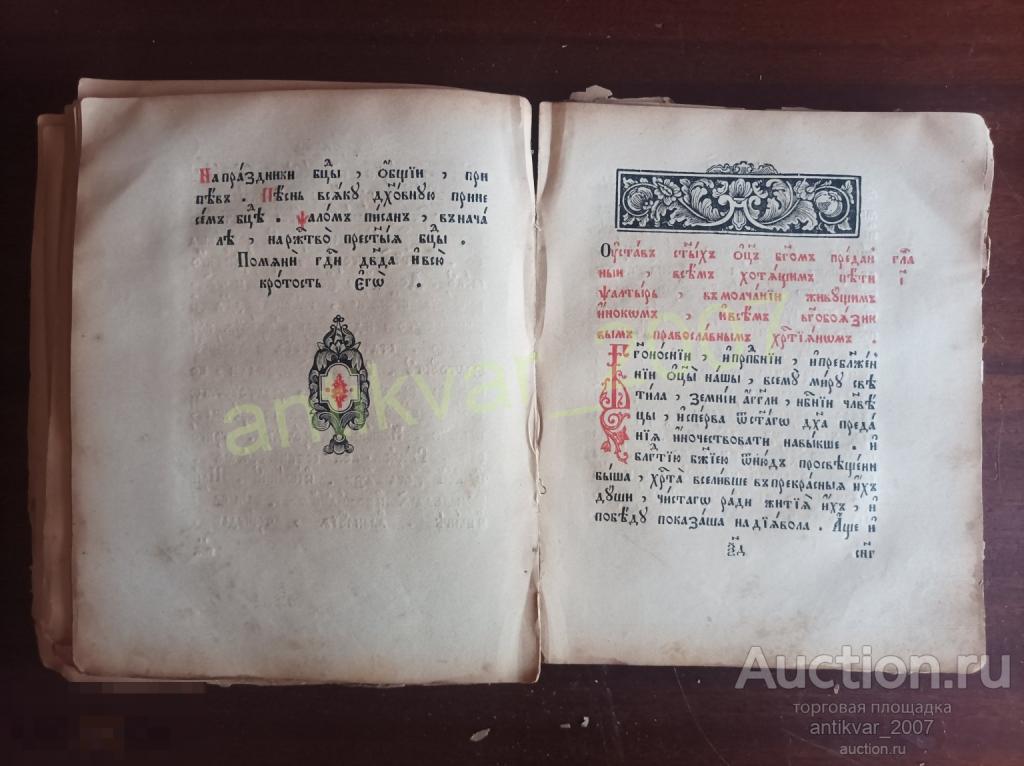 На пра́здники бцы , о҆́бщїи , при
пѣвъ . Пѣснь всѧ́ку дх҃о́вную прине
се́мъ бцѣ . Ѱало́мъ пи́санъ , в нача́
лѣ , на ржⷭ҇тво̀ прест҃ы́ѧ бцы .
Помѧнѝ гдⷭ҇и дв҃да и҆ всю̀
кро́тость є҆гѡ̀ .
Оу҆ста́въ ст҃ы́хъ ѻ҆ц҃ъ бг҃омъ пре́дан гла
ныи , всѣ́мъ хотѧ́щимъ пѣ́ти і҃
ѱалты́рь , в молча́нїи живу́щимъ
и҆́нокѡмъ , и҆ всѣ́мъ бг҃обоѧ́зни
вымъ правосла́внымъ хрⷭ҇тїѧ́нѡмъ .
Бг҃оно́снїи , и҆ прпⷣбнїи , и҆ пребл҃же́н
нїи ѻ҆ц҃ы̀ на́шы , всему̀ ми́ру свѣ
ти́ла , земні́и а҆́гг҃ли , нбⷭ҇нїи чл҃вѣ́
цы , и҆спе́рва ѿ ст҃а́гѡ дх҃а преда́
нїѧ и҆́ночествовати навы́кше . и҆
бл҃года́тїю бж҃їею ѿню́дъ просвѣще́ни
бы́ша , хрⷭ҇та̀ всели́вше в прекра́сныѧ и҆́хъ
ду́ши , чи́стагѡ ра́ди житїѧ̀ и҆́хъ , и҆
побѣ́ду показа́ша на дїѧ́вола . А҆́ще и҆
сн҃г
antikvar_2007
Auction.ru
торговая площадка
antikvar_2007
auction.ru